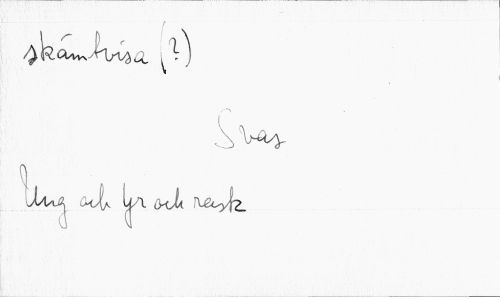 skämtvisa (?)
Svas
Ung och yr och rask